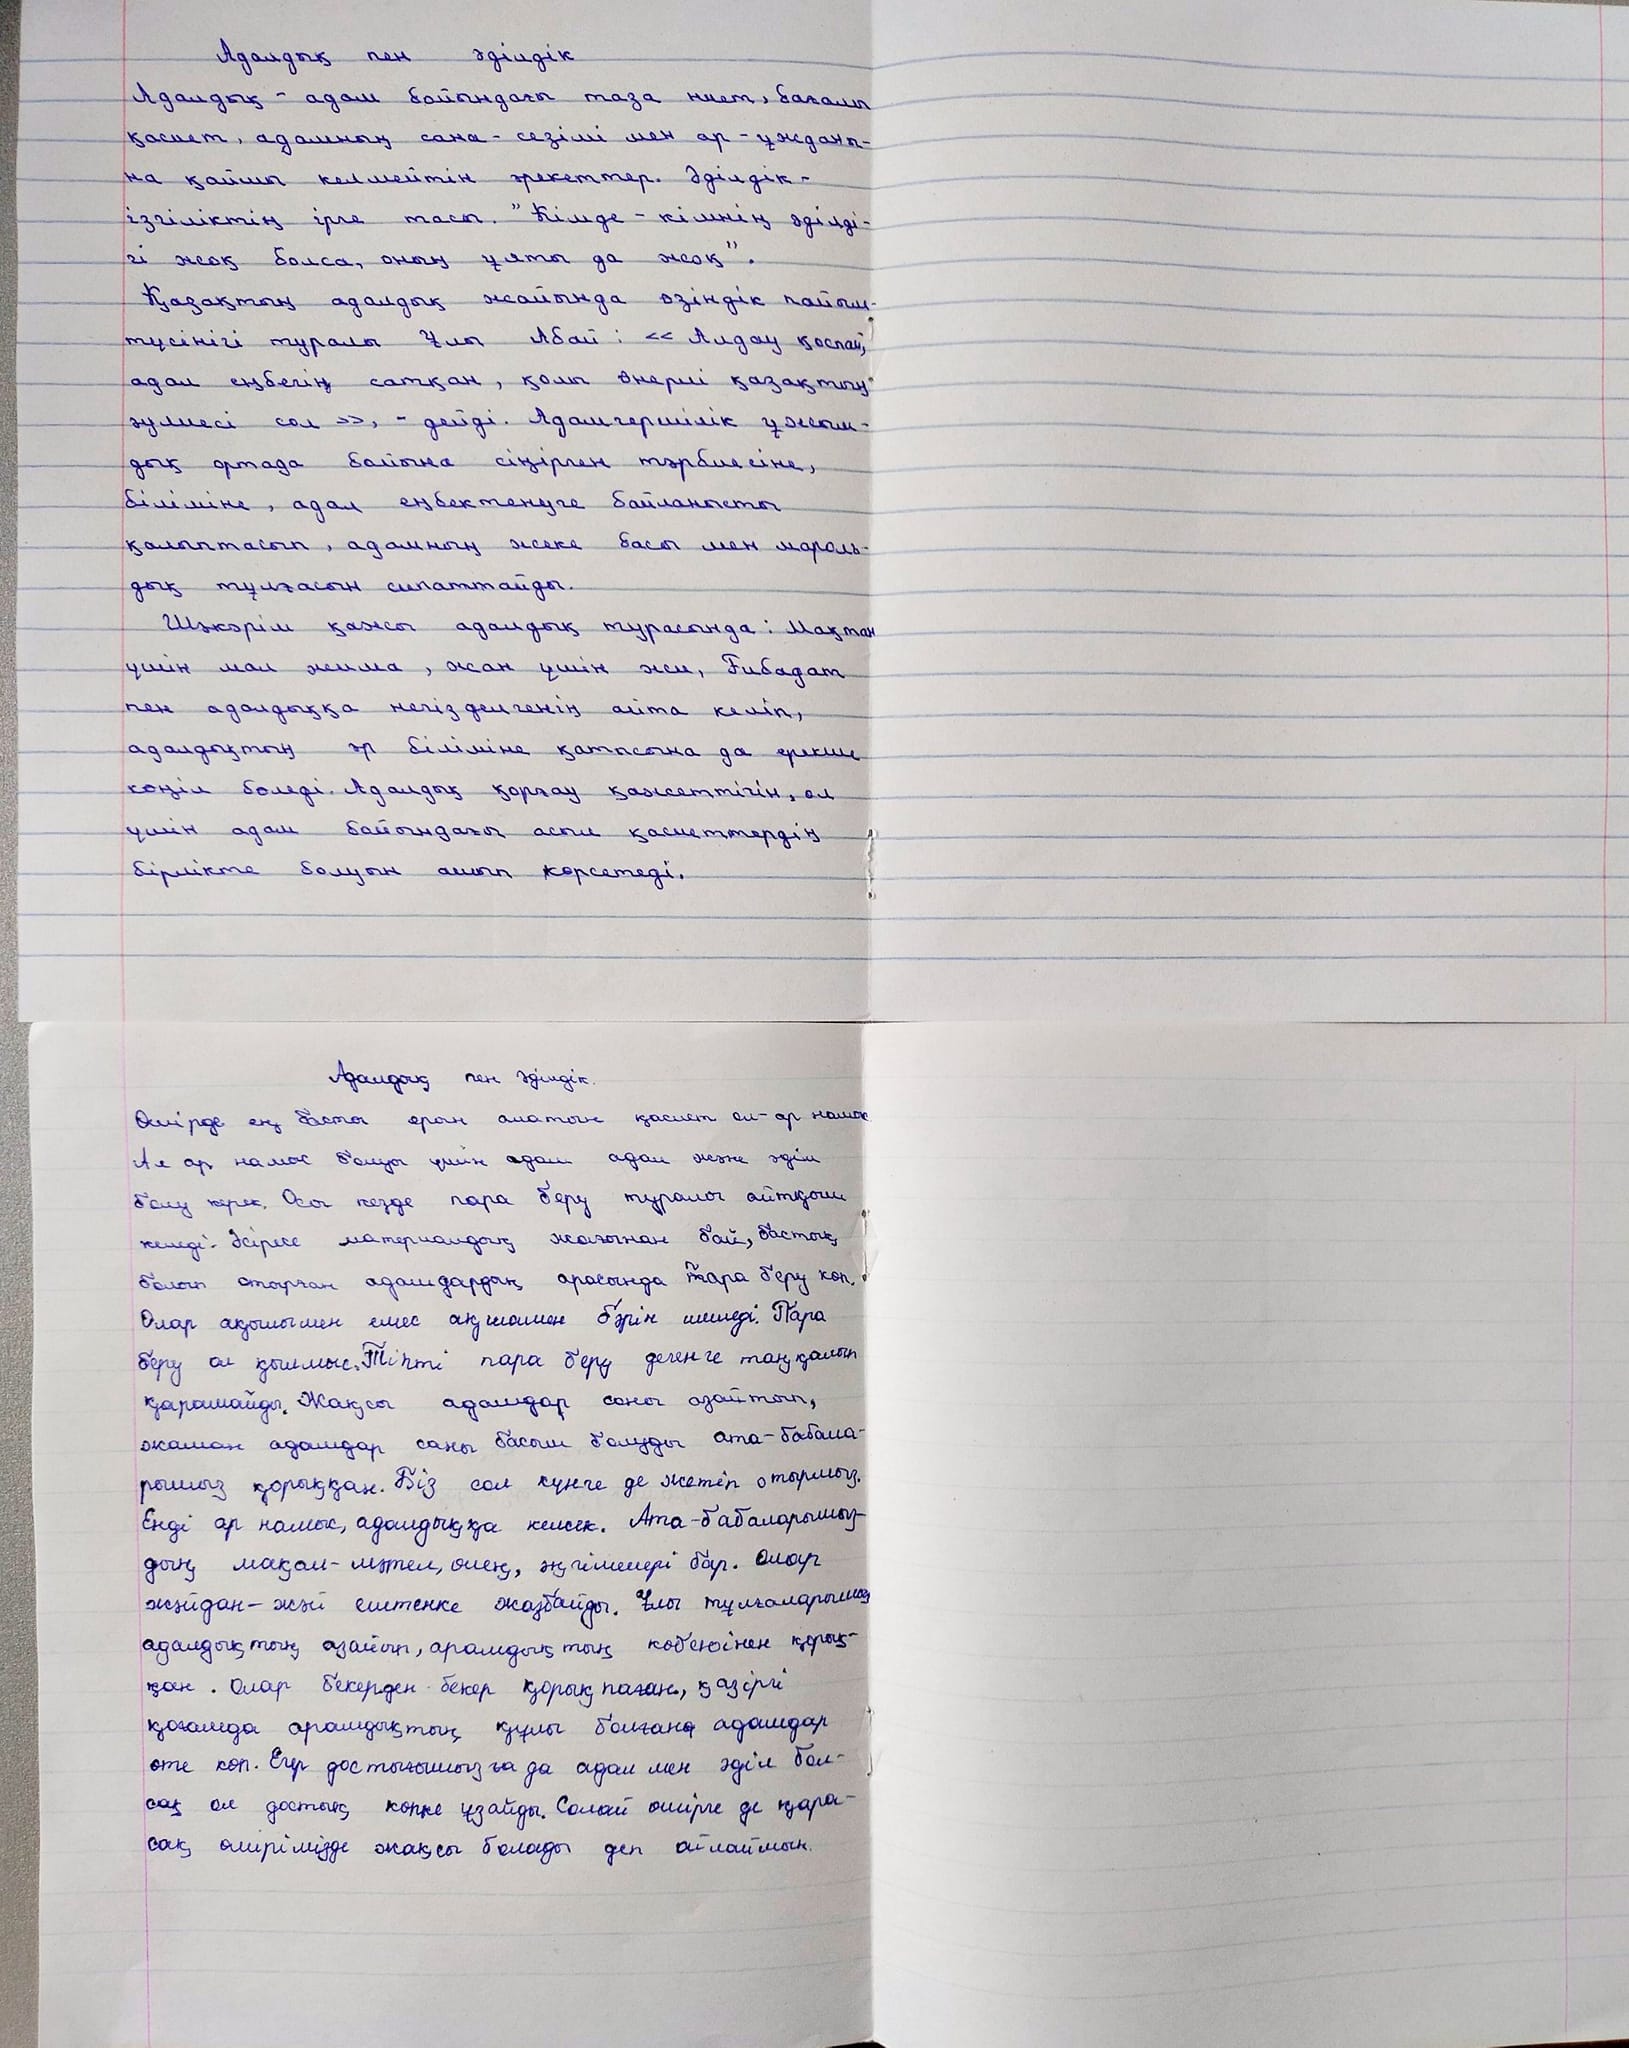 Адалдық пен әділдік
Адалдық - адам бойындағы таза ниет, бағалы
қасиет, адамның сана - сезімі мен ар - ұждағы-
на қайшы келмейтін әрекеттер. Әділдік -
ізгіліктің ірге тасы. "Кімде - кімнің әділді-
гі жоқ болса, оның ұяты да жоқ".
Қазақтың адалдық жайында өзіндік пайым-
түсінігі туралы Ұлы Абай : << Алдау қоспай,
адал еңбегің сатқан, қолы өнерлі қазақтың
әулиесі сол >>, - дейді. Адамгершілік ұжым-
дық ортада бойына сіңірген тәрбиесіне,
біліміне, адал еңбектенуге байланысты
қалыптасып, адамның жеке басы мен мораль-
дық тұлғасын сипаттайды.
Шәкәрім қажы адалдық турасында : Мақтан
үшін мал жима, жан үшін жи, Ғибадат
пен адалдыққа негізделгенің айта келіп,
адалдықтың әр біліміне қатысына да ерекше
көңіл бөледі. Адалдық қорғау қажеттігін, ол
үшін адам бойындағы асыл қасиеттердің
бірлікте болуын ашып көрсетеді.
Адалдық пен әділдік.
Өмірде ең басты орын алатын қасиет ол - ар намыс
Ал ар намыс болуы үшін адам адал және әділ
болу керек. Осы кезде пара беру туралы айтқым
келеді. Әсіресе материалдық жағынан бай, бастық
болып отырған адамдардың арасында пара беру көп.
Олар ақылымен емес ақшамен бәрін шешеді. Пара
беру ол қылмыс. Тіпті пара беру дегенге таңқалып
қарамайды. Жақсы адамдар саны азайтып,
жаман адамдар саны басым болуды ата-бабала-
рымыз қорыққан. Біз сол күнге де жетіп отырмыз.
Енді ар намыс, адалдыққа келсек. Ата-бабаларымыз-
дың мақал-мәтел, өлең, әңгімелері бар. Олар
жәйдан-жәй ештенке жазбайды. Ұлы тұлғаларымыз
адалдықтың азайып, арамдықтың көбеюінен қорық-
қан. Олар бекерден бекер қорықпаған, қазіргі
қоғамда арамдықтың құлы болған адамдар
өте көп. Егер достығымызға да адал мен әділ бол-
сақ ол достық көпке ұзайды. Солай өмірге де қара-
сақ өмірімізде жақсы болады деп ойлаймын.